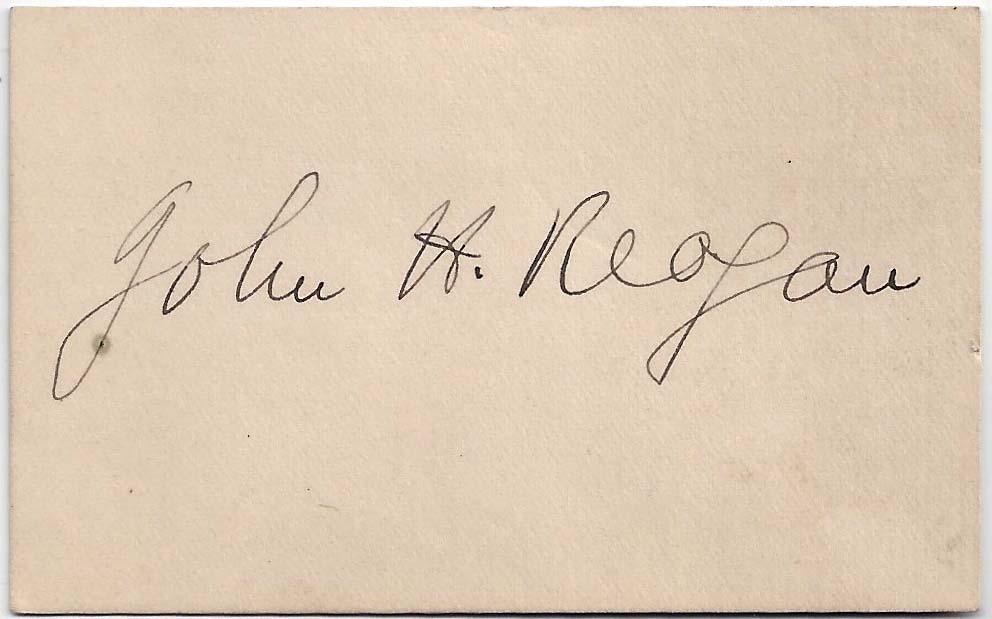 John H. Reagan